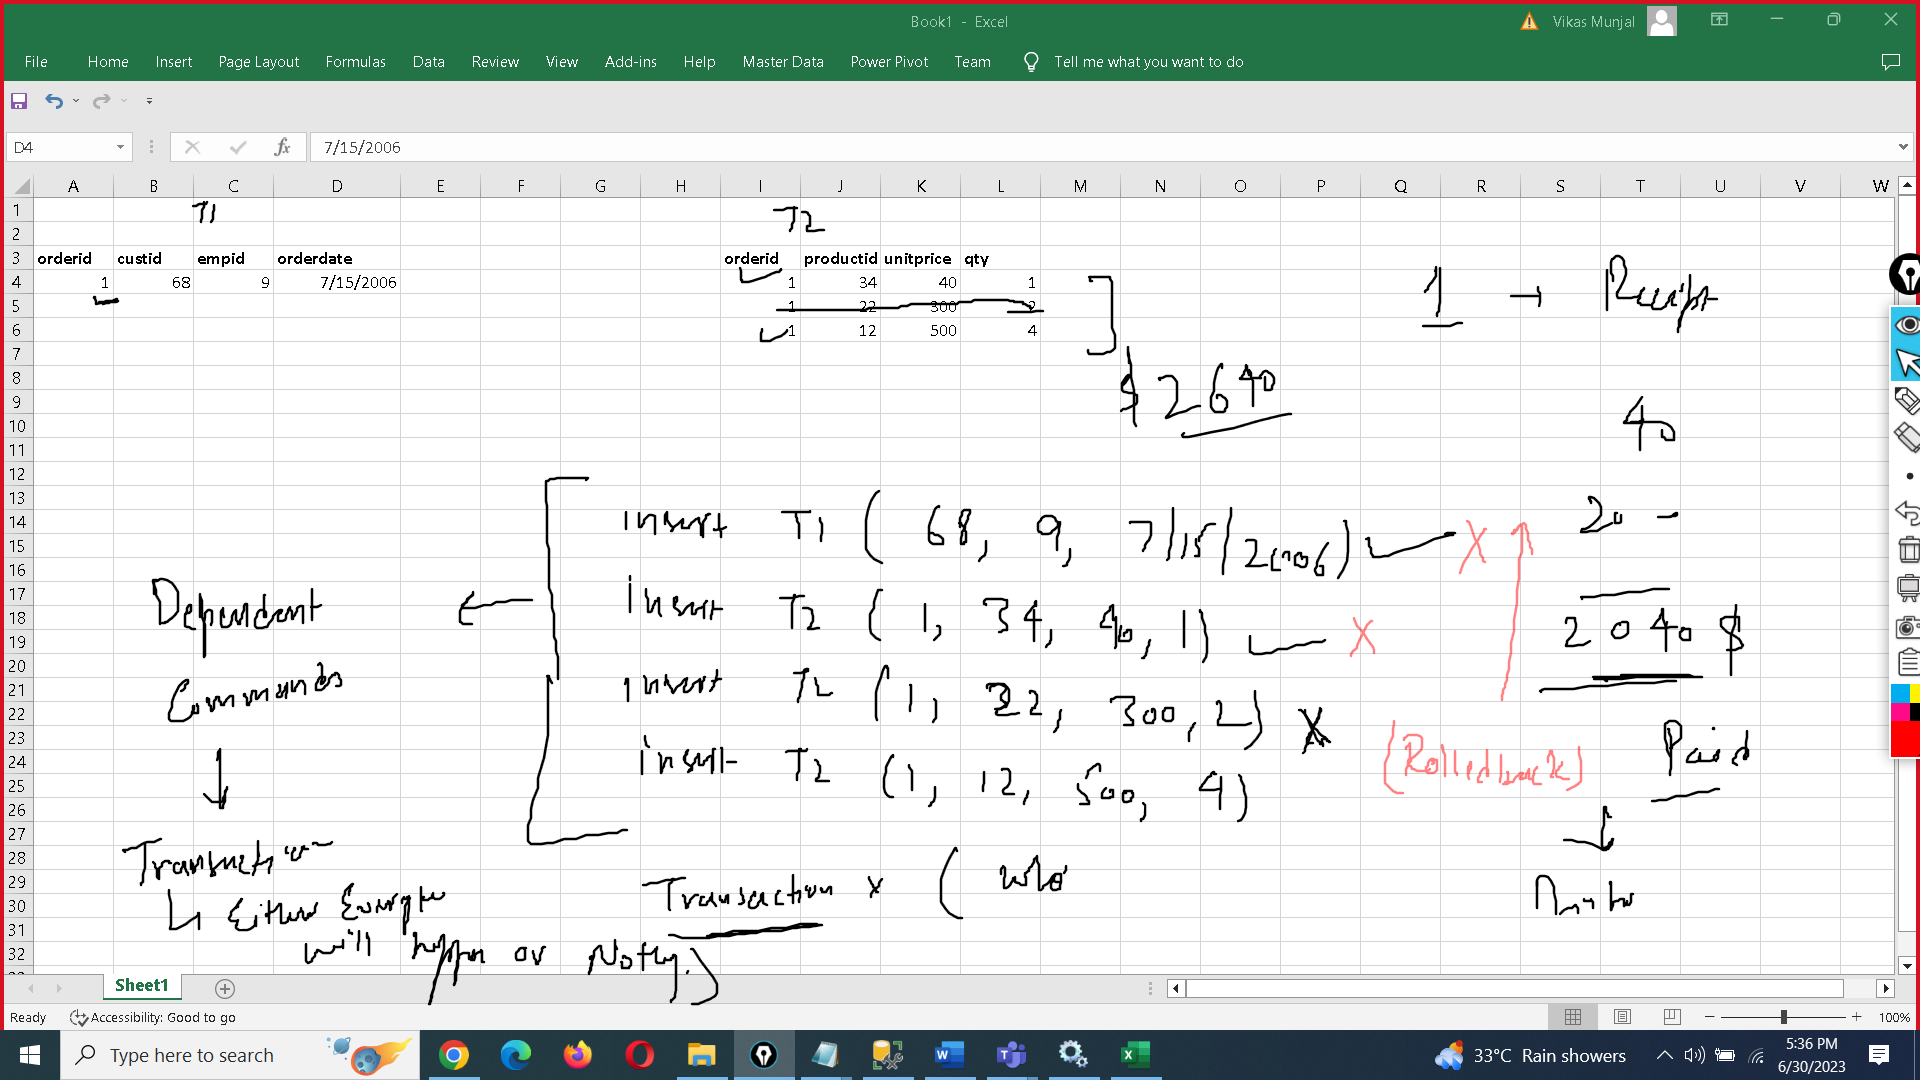 Book1 - Excel
Vikas Munjal
File Home Insert Page Layout Formulas Data Review View Add-ins Help Master Data Power Pivot Team Tell me what you want to do
D4 fx 7/15/2006
A B C D E F G H I J K L M N O P Q R S T U V W
1 T1 T2
2
3 orderid custid empid orderdate orderid productid unitprice qty
4 1 68 9 7/15/2006 1 34 40 1
5 1 22 300 2
6 1 12 500 4
7
8
9
10
11
12
13
14
15
16
17
18
19
20
21
22
23
24
25
26
27
28
29
30
31
32
1 → Receipt
$ 2640
40
insert T1 ( 68, 9, 7/15/2006) X
20 -
insert T2 ( 1, 34, 40, 1) X
2040 $
insert T2 (1, 22, 300, 2) X
(Rolledback)
Paid
insert T2 (1, 12, 500, 4)
Dependent
Commands
Transaction
Either Everything
will happen or Nothing)
Transaction x (
Sheet1
Ready Accessibility: Good to go 100%
Type here to search
33°C Rain showers
5:36 PM
6/30/2023